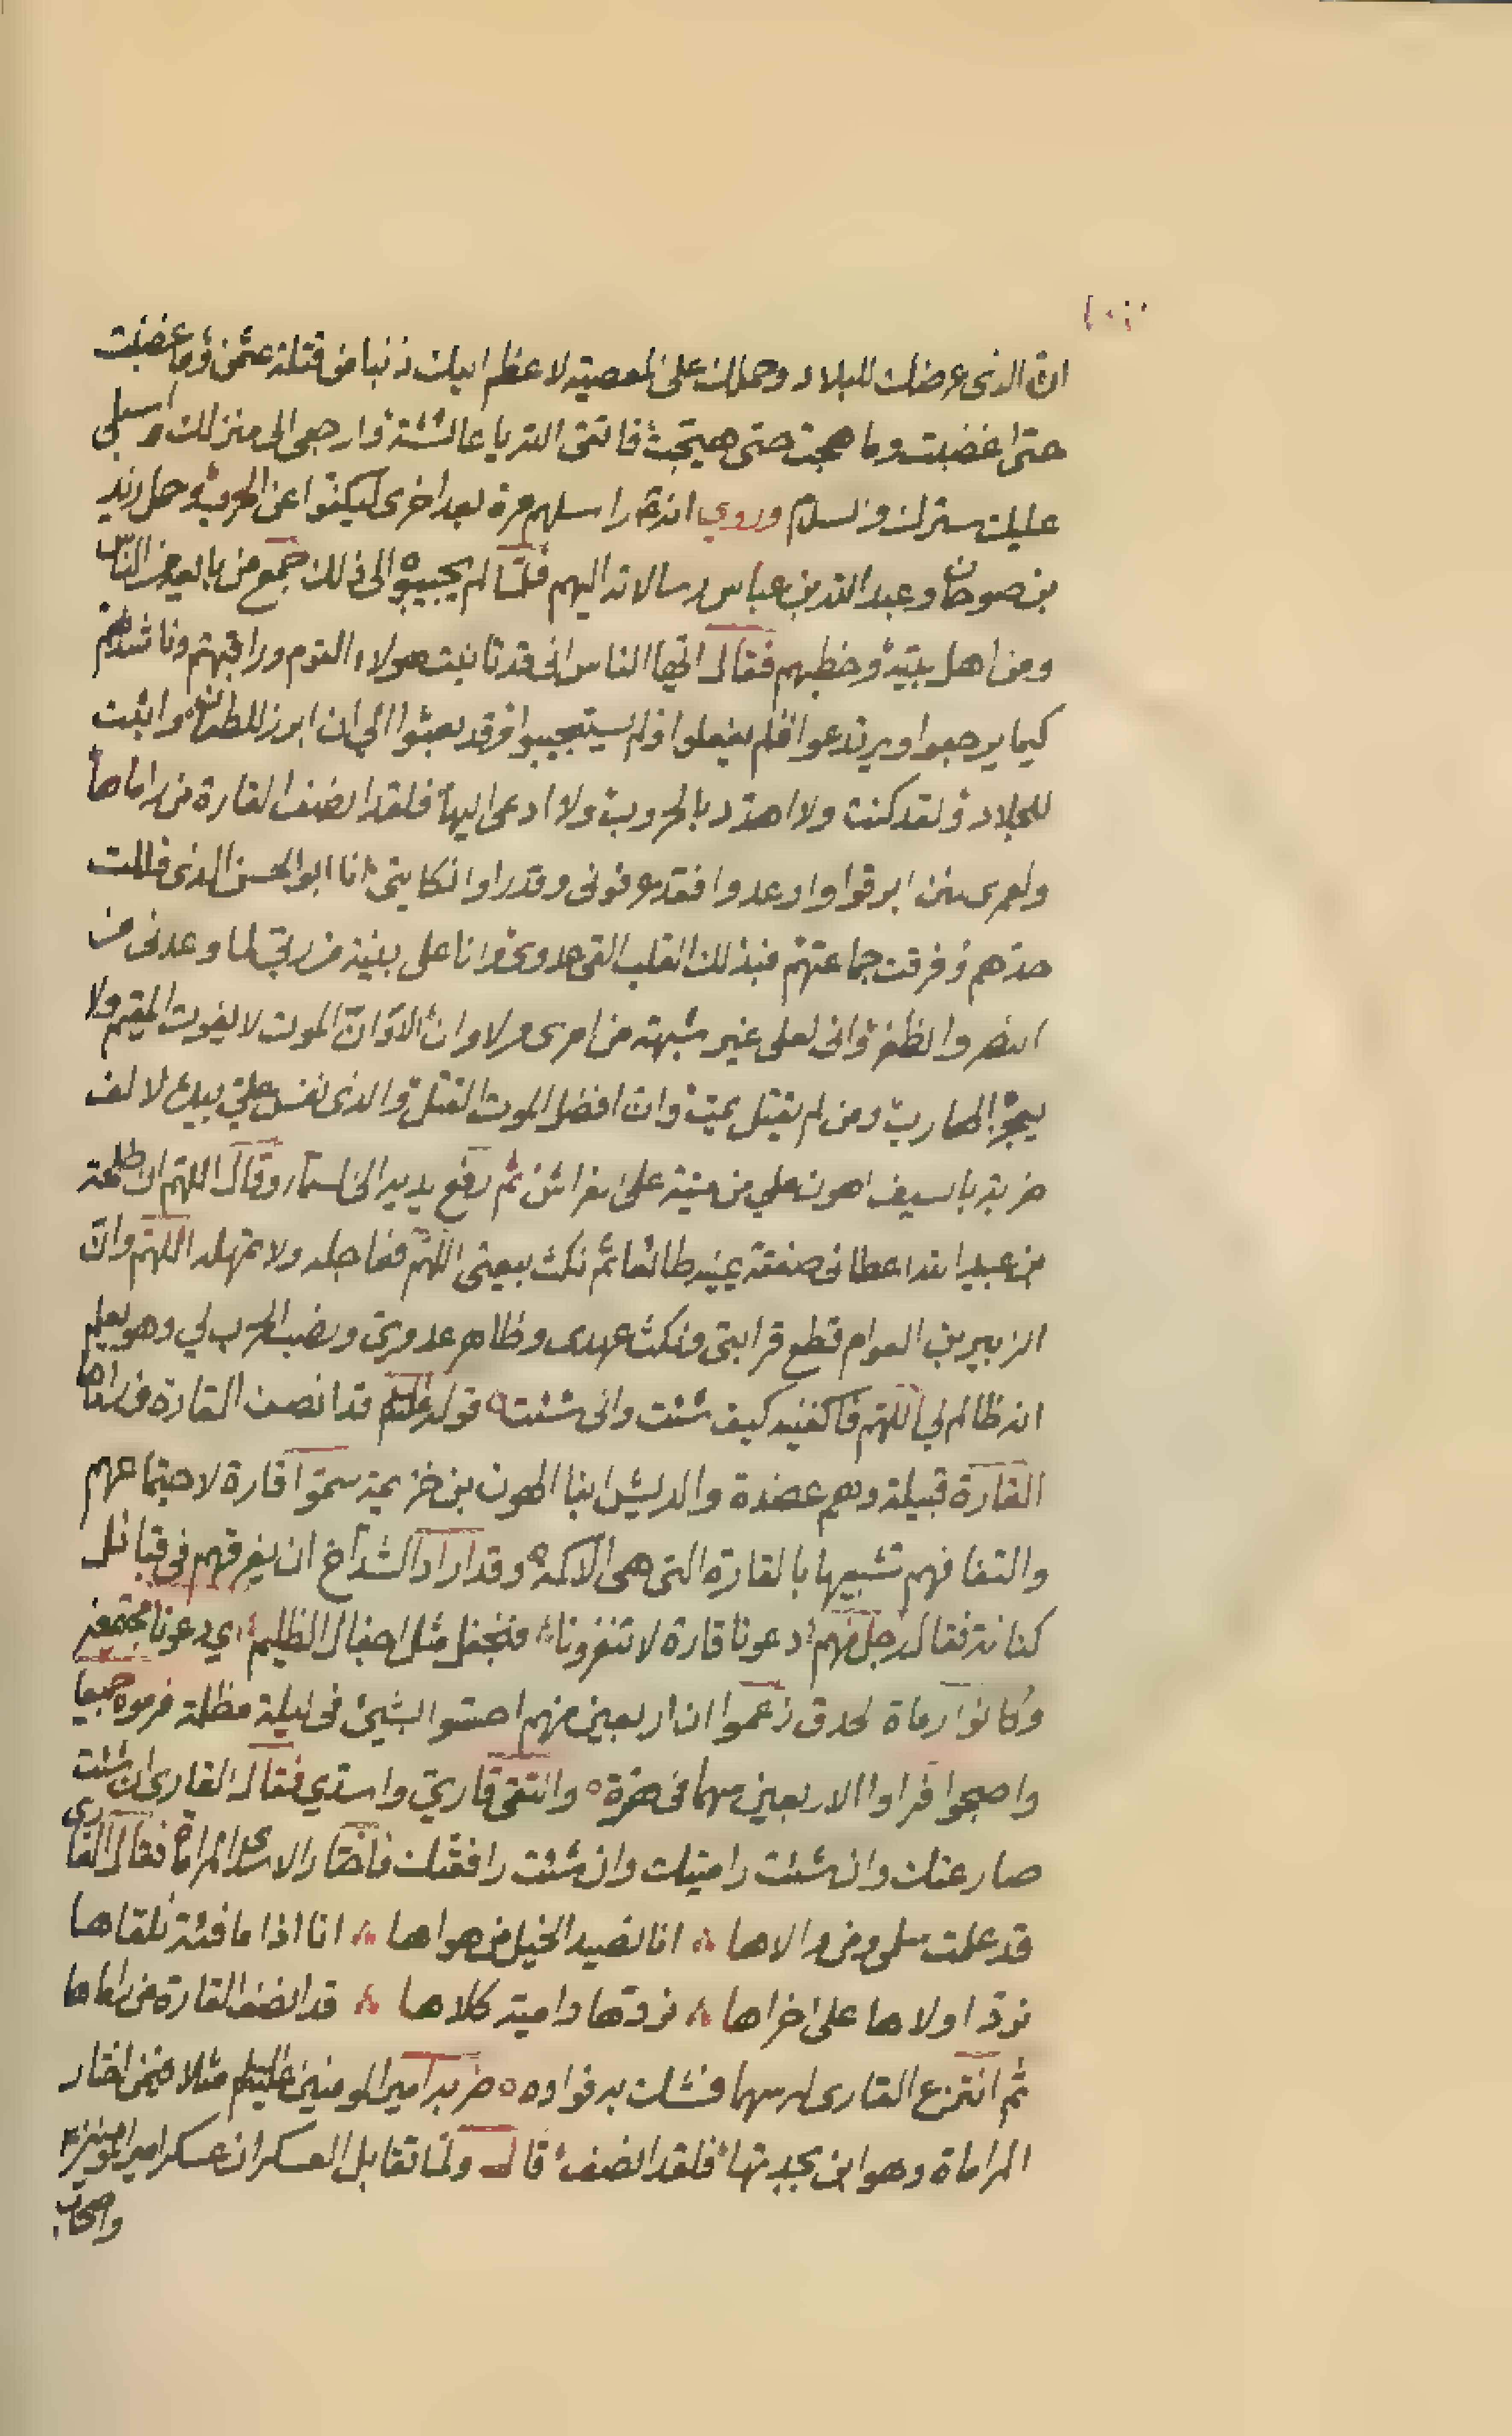 ان الذي عرضك للبلاد وحملك على المعصية لاعظم اليك ذنبا من قتلة عثمن وما غضبت
حتى اغضبت وما هجت حتى هيجت فاتقى الله يا عائشة وارجعى الى منزلك واسبلى
عليك سترك والسلام وروي انه راسلهم مرة بعد اخرى ليكفوا عن الحرب وحمل زيد
بن صوحان وعبد الله بن عباس رسالاته اليهم فلما لم يجيبوه الى ذلك جمع من بايعه من الناس
ومن اهل بيته وخطبهم فقال ايها الناس انى قد تانيت هولاء القوم وراقبتهم وناشدتهم
كيما يرجعوا ويرتدعوا فلم يفعلوا ولم يستجيبوا وقد بعثوا الي ان ابرز للطعان واثبت
للجلاد ولقد كنت ولا اهدد بالحروب ولا ادعى اليها فلقد انصف القارة من راماها
ولعمرى لئن ابرقوا وارعدوا فقد عرفونى وقد راوا نكايتى انا ابو الحسن الذى فللت
حدهم وفرقت جماعتهم فبذلك القلب القى عدوى وانا على بينة من ربي لما وعدنى من
النصر والظفر وانى لعلى غير شبهة من امرى الا وان الموت لا يفوت المقيم ولا
يعجزه الهارب ومن لم يقتل يمت وان افضل الموت القتل والذى نفس على بيده لالف
ضربة بالسيف اهون علي من ميتة على الفراش ثم رفع يديه الى السماء وقال اللهم ان طلحة
بن عبيد الله اعطانى صفقة يمينه طائعا ثم نكث بيعتى اللهم فعاجله ولا تمهله اللهم وان
الزبير بن العوام قطع قرابتى ونكث عهدى وظاهر عدوى ونصب الحرب لي وهو يعلم
انه ظالم لي اللهم فاكفنيه كيف شئت وانى شئت قوله عليه السلم قد انصف القارة من راماها
القارة قبيلة وهم عضدة والديش ابنا الهون بن خزيمة سموا قارة لاجتماعهم
والتفافهم تشبيها بالقارة التى هى الاكمة وقد اراد الشداخ ان يفرقهم فى قبائل
كنانة فقال رجل منهم دعونا قارة لا تنفرونا فنجفل مثل اجفال الظليم اي دعونا مجتمعين
وكانوا رماة الحدق زعموا ان اربعين منهم احسوا بشيئ فى ليلة مظلمة فرموه جميعا
واصبحوا فراوا الاربعين سهما فى هرة والتقى قاري واسدي فقال القارى ان شئت
صارعتك وان شئت راميتك وان شئت رافقتك فاختار الاسدى المراماة فقال القارى
قد علمت سلمى ومن والاها انا نصيد الخيل من هواها انا اذا ما فئة نلقاها
نرد اولاها على اخراها نردها دامية كلاها قد انصف القارة من راماها
ثم انتزع القارى له سهما فشك به فواده ضربه امير المومنين عليه السلم مثلا فيمن اختار
المراماة وهو ابن بجدتها فلقد انصف قال ولما تقابل العسكران عسكر امير المومنين
واصحاب